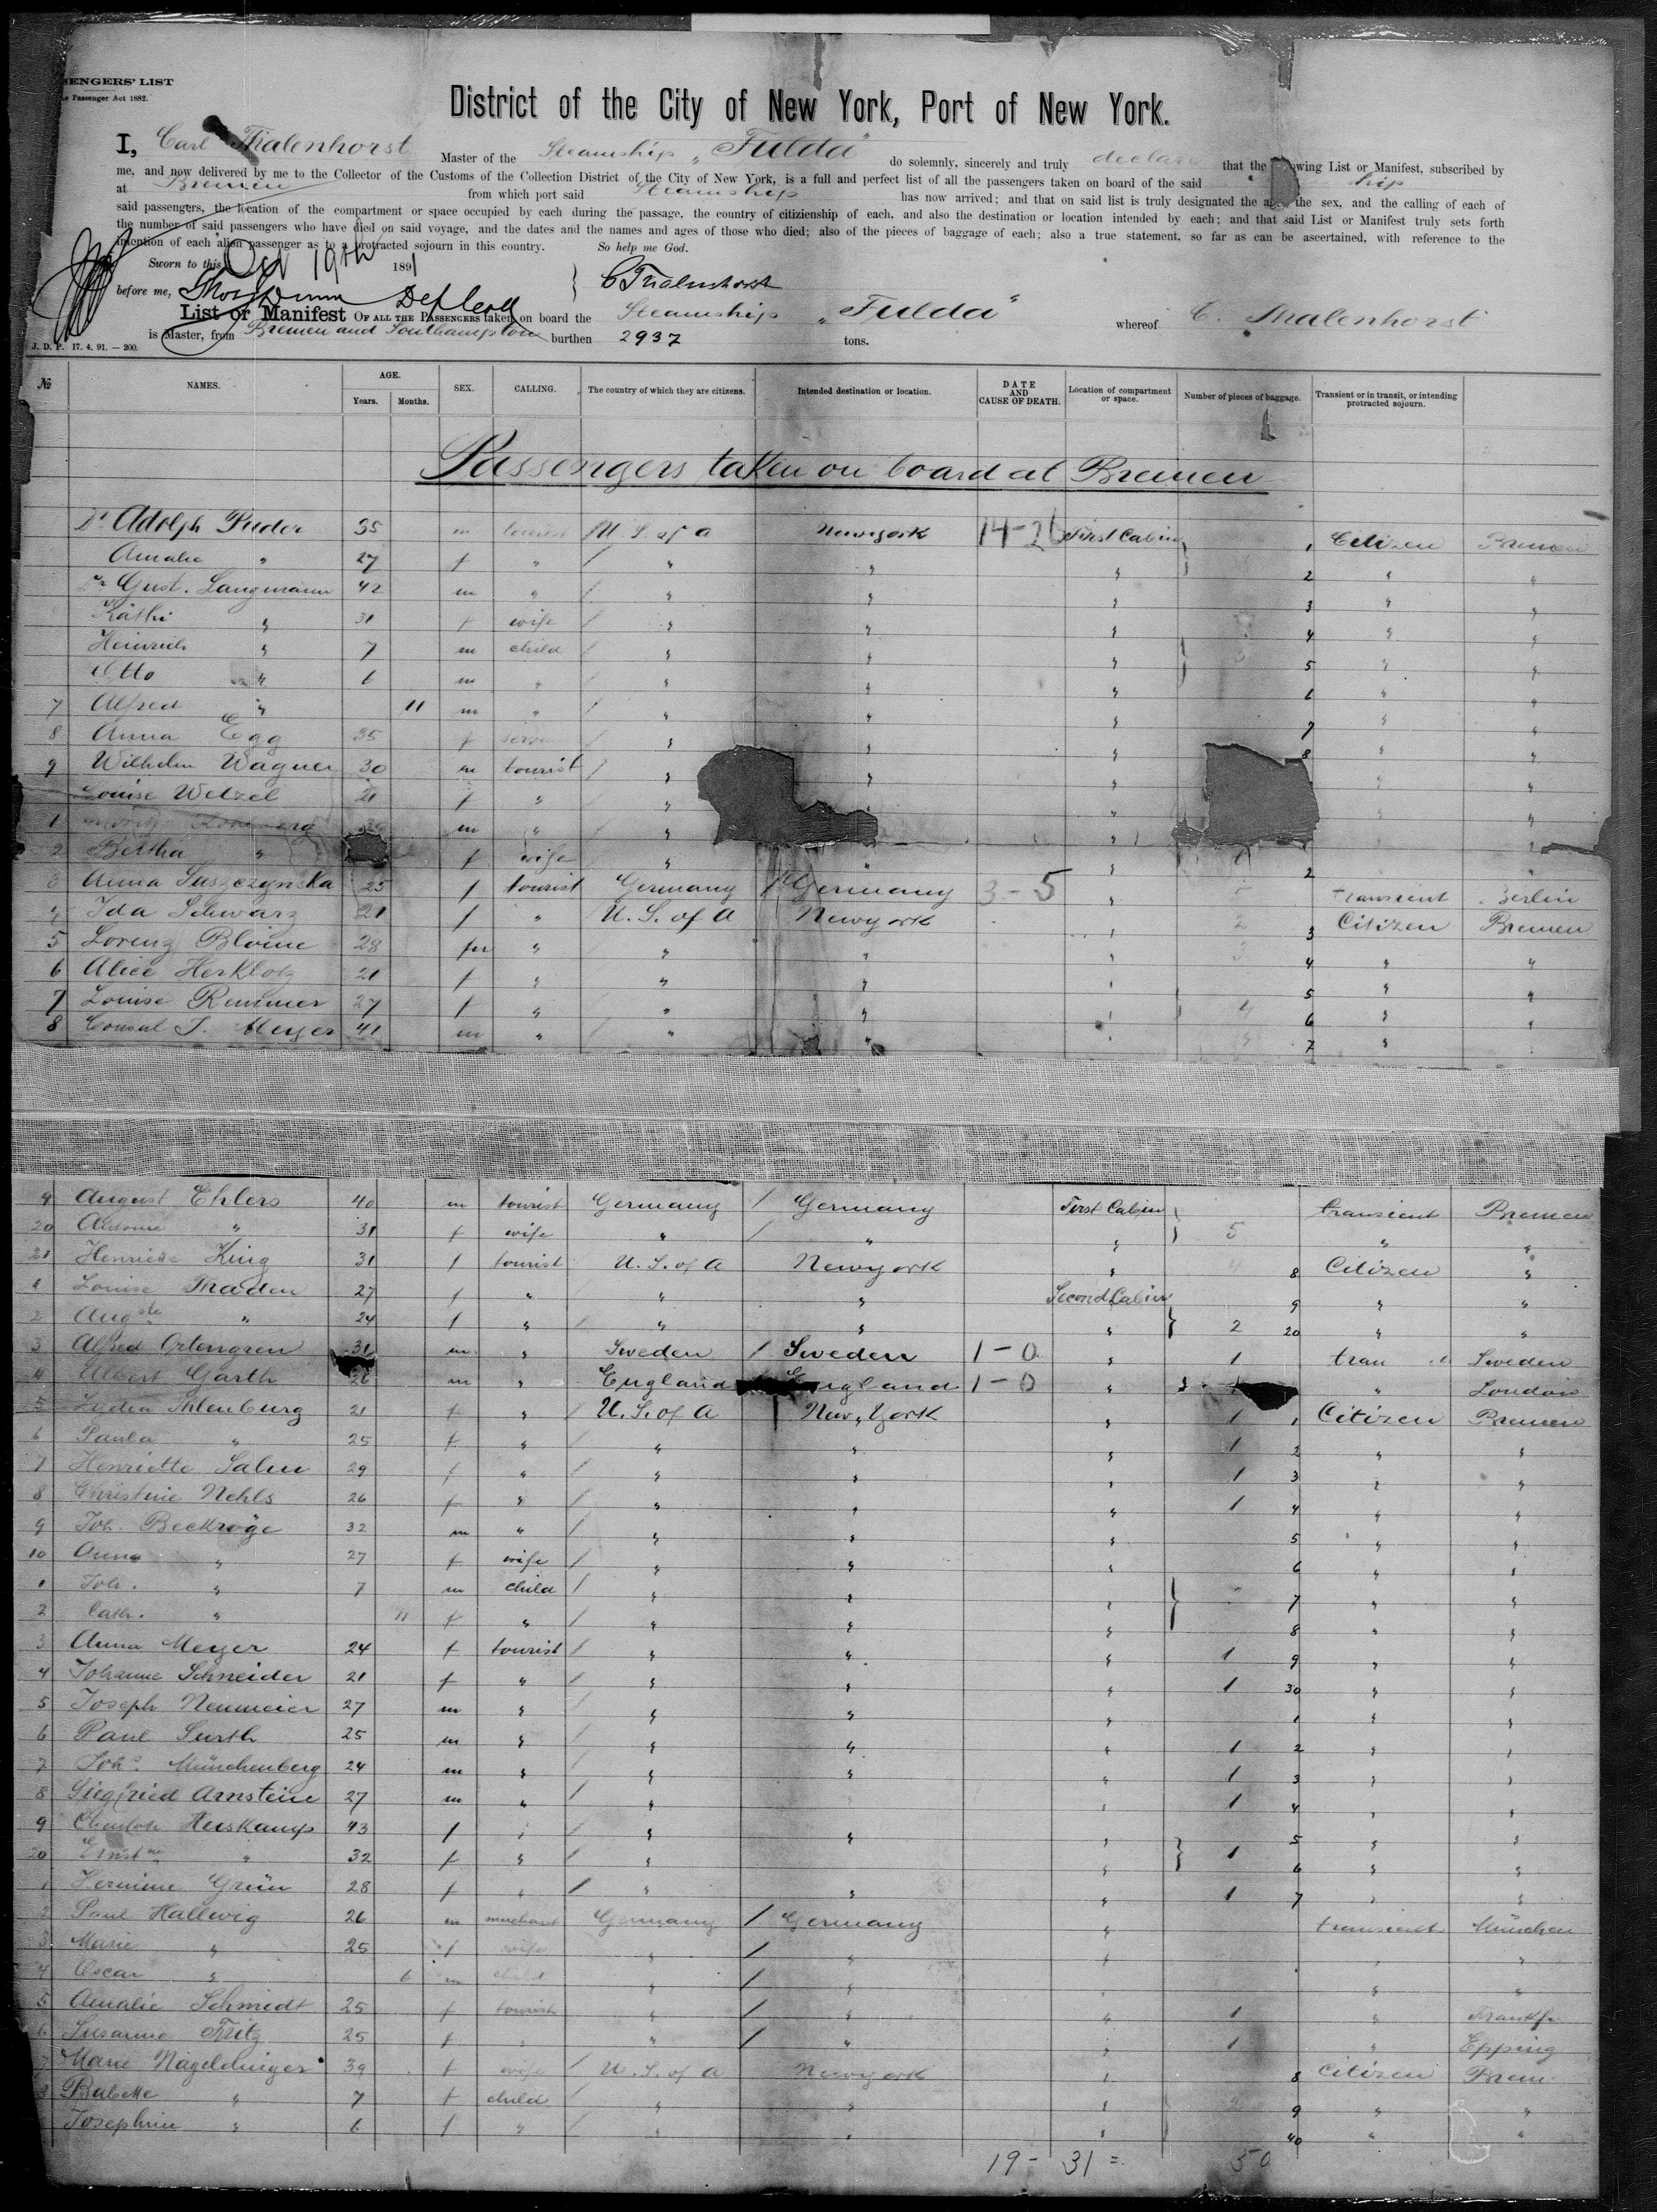 SENGERS' LIST
e Passenger Act 1882.
District of the City of New York, Port of New York.
I, Carl Thalenhorst Master of the Steamship „Fulda" do solemnly, sincerely and truly declare that the wing List or Manifest, subscribed by
me, and now delivered by me to the Collector of the Customs of the Collection District of the City of New York, is a full and perfect list of all the passengers taken on board of the said ship
at Bremen from which port said Steamship has now arrived; and that on said list is truly designated the a the sex, and the calling of each of
said passengers, the location of the compartment or space occupied by each during the passage, the country of citizienship of each, and also the destination or location intended by each; and that said List or Manifest truly sets forth
the number of said passengers who have died on said voyage, and the dates and the names and ages of those who died; also of the pieces of baggage of each; also a true statement, so far as can be ascertained, with reference to the
intention of each alien passenger as to a protracted sojourn in this country. So help me God.
Sworn to this Oct 19th 1891
before me, C Thalenhorst
List or Manifest OF ALL THE PASSENGERS taken on board the Steamship „Fulda" whereof C. Thalenhorst
is Master, from Bremen and Southampton burthen 2937 tons.
J. D. P. 17. 4. 91. — 200.
№ NAMES. AGE. Years. Months. SEX. CALLING. The country of which they are citizens. Intended destination or location. DATE AND CAUSE OF DEATH. Location of compartment or space. Number of pieces of baggage. Transient or in transit, or intending protracted sojourn.
Passengers taken on board at Bremen
Dr Adolph Puder 35 m tourist U. S. of a Newyork 14-26 First Cabin 1 Citizen Bremen
Amalie " 27 f " / " " " 2 " "
Dr Gust. Langmann 42 m " / " " " 3 " "
Käthi " 31 f wife / " " " 4 " "
Heinrich " 7 m child / " " " 3 5 " "
Otto " 6 m " / " " " 6 " "
7 Alfred " 11 m " / " " " 7 " "
8 Anna Egg 35 f / " " " 8 " "
9 Wilhelm Wagner 30 m tourist / " " " " "
Louise Wetzel 21 f " / " " " "
1 m " / " " "
2 Bertha " f wife / " " " 1 2
3 Anna Suszczynska 25 f tourist Germany / Germany 3-5 " 5 transient Berlin
4 Ida Schwarz 21 f " U. S. of A Newyork " 2 3 Citizen Bremen
5 Lorenz Bloine 28 " " " " 3 4 " "
6 Alice Herklotz 21 f " " " " 5 " "
7 Louise Remmer 27 f " " " " 4 6 " "
8 Consul S. Meyer 41 m " " " " 7 "
9 August Ehlers 40 m tourist Germany / Germany First Cabin transient Bremen
20 Antonie " 31 f wife " / " " 5 " "
21 Henriette King 31 f tourist U. S. of A Newyork " 4 8 Citizen "
1 Louise Thaden 27 f " " " Second Cabin 9 " "
2 Augste " 24 f " / " " " 2 20 " "
3 Alfred Ortengren 31 m " Sweden / Sweden 1-0 " 1 tran Sweden
4 Albert Garth 26 m " England England 1-0 " " London
5 Lydia Ihlenburg 21 f " / U. S. of A New York " 1 1 Citizen Bremen
6 Paula " 25 f " / " " " 1 2 " "
7 Henriette Salm 29 f " / " " " 1 3 " "
8 Christine Nehls 26 f " / " " " 1 4 " "
9 Joh. Beckröge 32 m " / " " " 5 " "
10 Anna " 27 f wife / " " " 6 " "
1 Joh. " 7 m child / " " " 7 " "
2 Cath. " 11 f " / " " " 8 " "
3 Anna Meyer 24 f tourist / " " " 1 9 " "
4 Johanne Schneider 21 f " / " " " 1 30 " "
5 Joseph Neumeier 27 m " / " " " 1 " "
6 Paul Surth 25 m " / " " " 1 2 " "
7 Johs Münchenberg 24 m " / " " " 1 3 " "
8 Siegfried Arnstein 27 m " / " " 1 4 " "
9 Charlotte Heiskamp 43 f " / " " " 5 " "
20 Ernstne " 32 f " / " " 1 6 " "
1 Hermine Grün 28 f " / " " " 1 7 " "
2 Paul Hallwig 26 m merchant Germany / Germany " transient München
3 Marie " 25 f wife " / " " " "
4 Oscar " 6 m child " / " " " "
5 Amalie Schmidt 25 f tourist " / " " 1 " Frankfr
6 Susanne Fritz 25 f " " / " " 1 " Epping
7 Marie Nägeldinger 39 f wife / U. S. of A Newyork " 8 Citizen Brem
8 Babette " 7 f child / " " " 9 " "
Josephine " 6 f " / " " " 40 " "
19 - 31 = 50